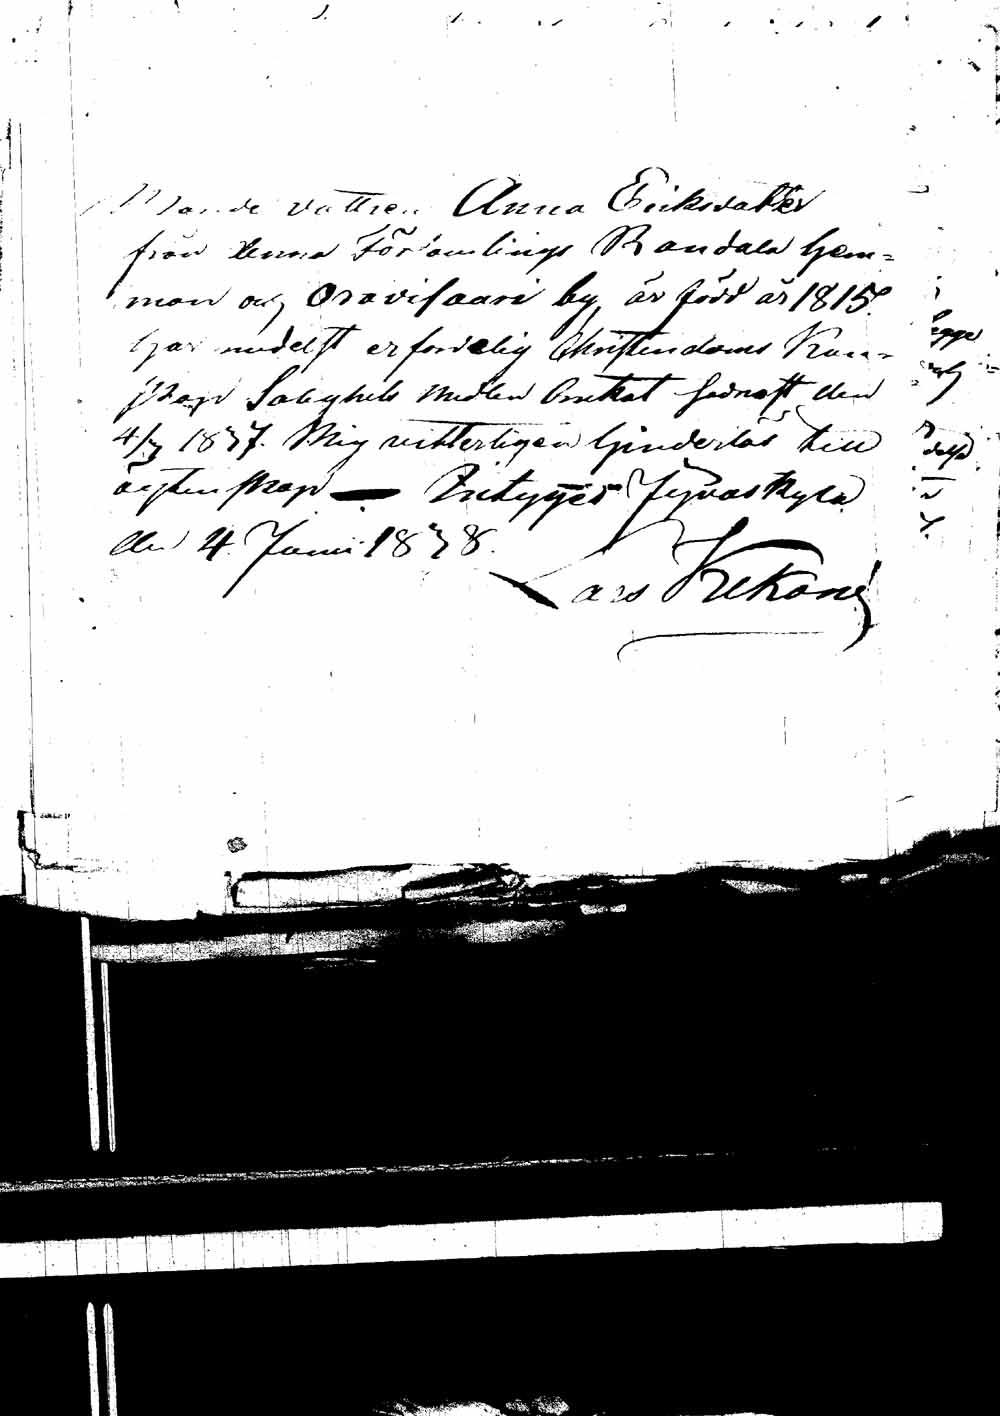 Bondedottren Anna Eriksdotter
från denna Församlings Randala Hem=
man och Oravisaari by, är född år 1815.
har medelst erforderlig Christendoms Kun=
skap Salighets medlen brukat sednast den
4/3 1837. Mig vetterligen hinderlös till
ägtenskap — Intygar Jyväskylä
den 4 Juni 1838.
Lars Kekoni